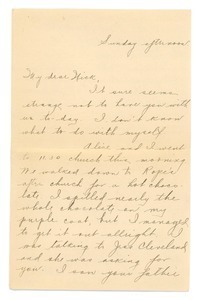 Sunday afternoon
My dear Nick,
It sure seems
strange not to have you with
us to day. I don't know
what to do with myself.
Alice and I went
to church this morning
We walked down to
after church for a hot choco-
late I spilled nearly the
whole chocolate on my
purple coat, but I managed
to get it out allright. I
was talking to Jess Cleveland
and she was asking for
you. I saw your father